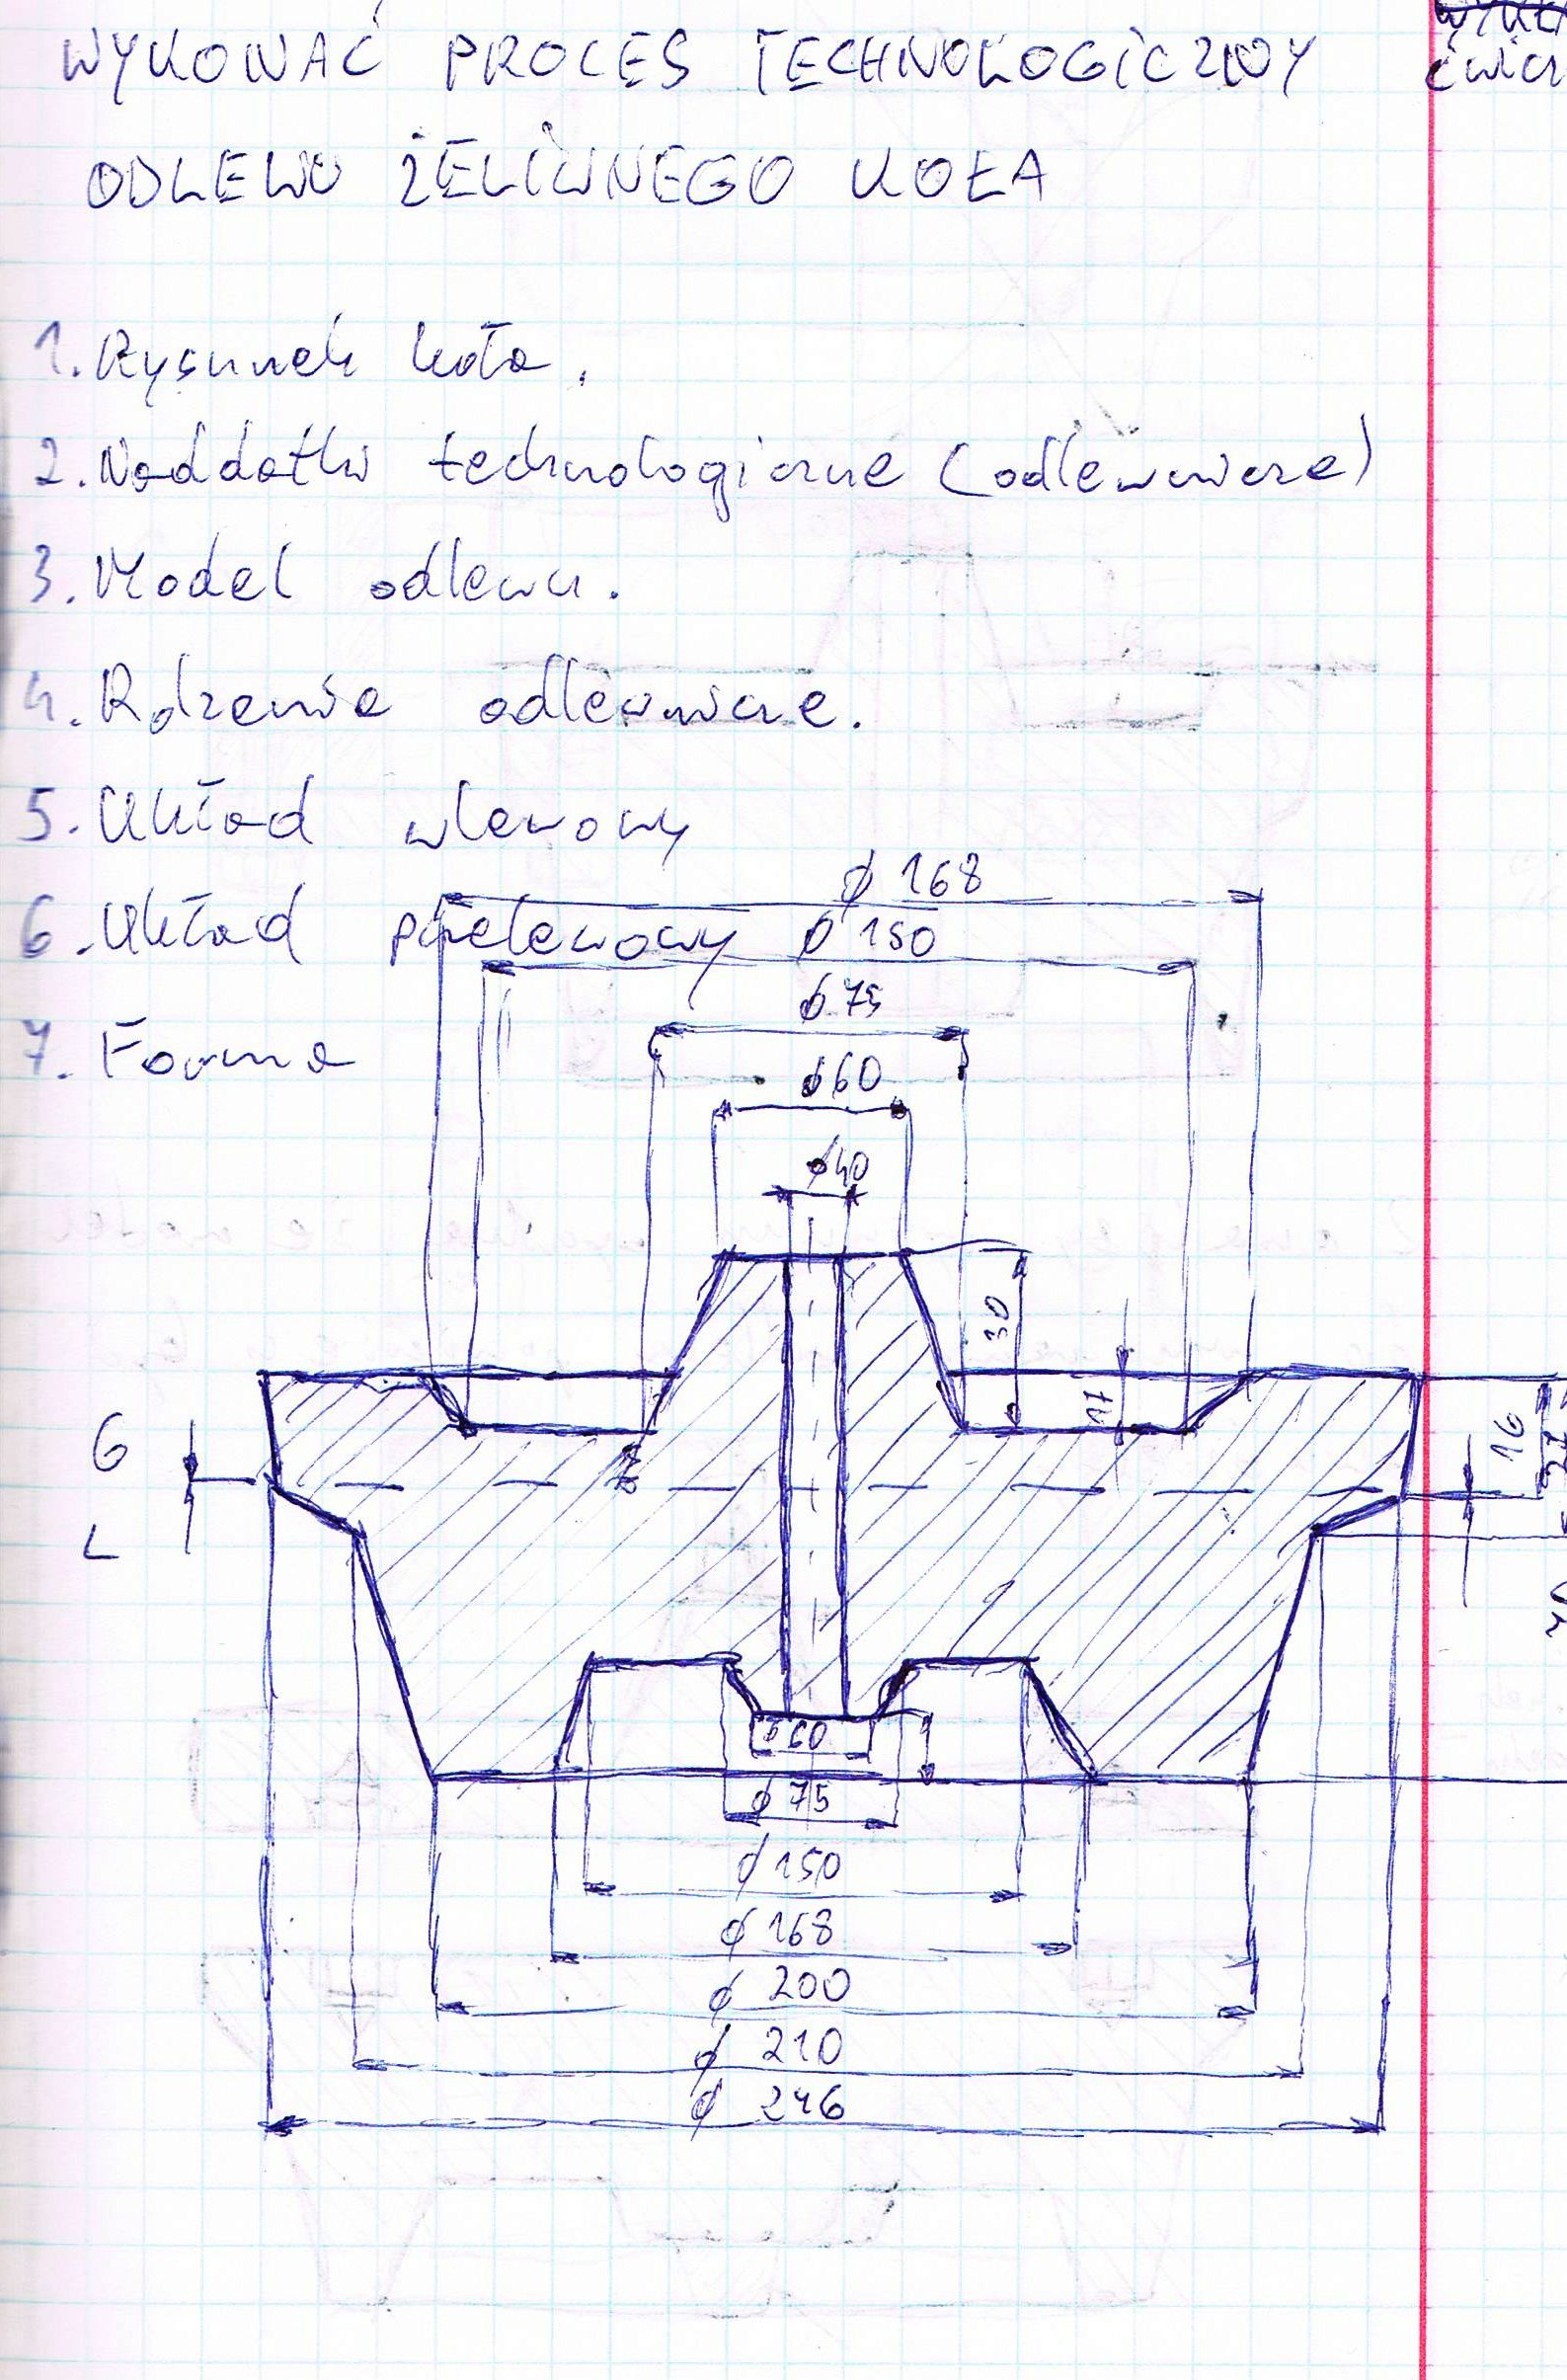 WYKONAĆ PROCES TECHNOLOGICZNY
ODLEWU ŻELIWNEGO KOŁA
1. Rysunek koła.
2. Naddatki technologiczne (odlewnicze)
3. Model odlewu.
4. Rdzenie odlewnicze.
5. Układ wlewowy
6. Układ przelewowy
7. Forma
ϕ 168
ϕ 150
ϕ 75
ϕ60
ϕ40
30
17
G
L
16
ϕ60
ϕ 75
ϕ 150
ϕ 168
ϕ 200
ϕ 210
ϕ 246